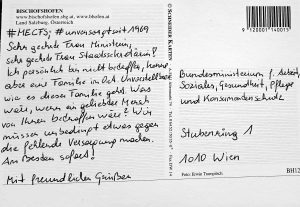 BISCHOFSHOFEN
www.bischofshofen.sbg.at, www.bhofen.at
Land Salzburg, Österreich
#MECFS; #unversorgtseit1969
Sehr geehrte Frau Ministerin,
Sehr geehrte Frau Staatssekretärin!
Ich persönlich bin nicht betroffen, kenne
aber eine Familie in OÖ. Unvorstellbar
wie es dieser Familie geht. Was
wäre, wenn ein geliebter Mensch
von Ihnen betroffen wäre? Wir
müssen unbedingt etwas gegen
die fehlende Versorgung machen.
Am Besten sofort!
Mit freundlichen Grüßen
Bundesministerium f. Arbeit,
Soziales, Gesundheit, Pflege
und Konsumentenschutz
Stubenring 1
1010 Wien
9 120001 140015
Foto: Erwin
BH12